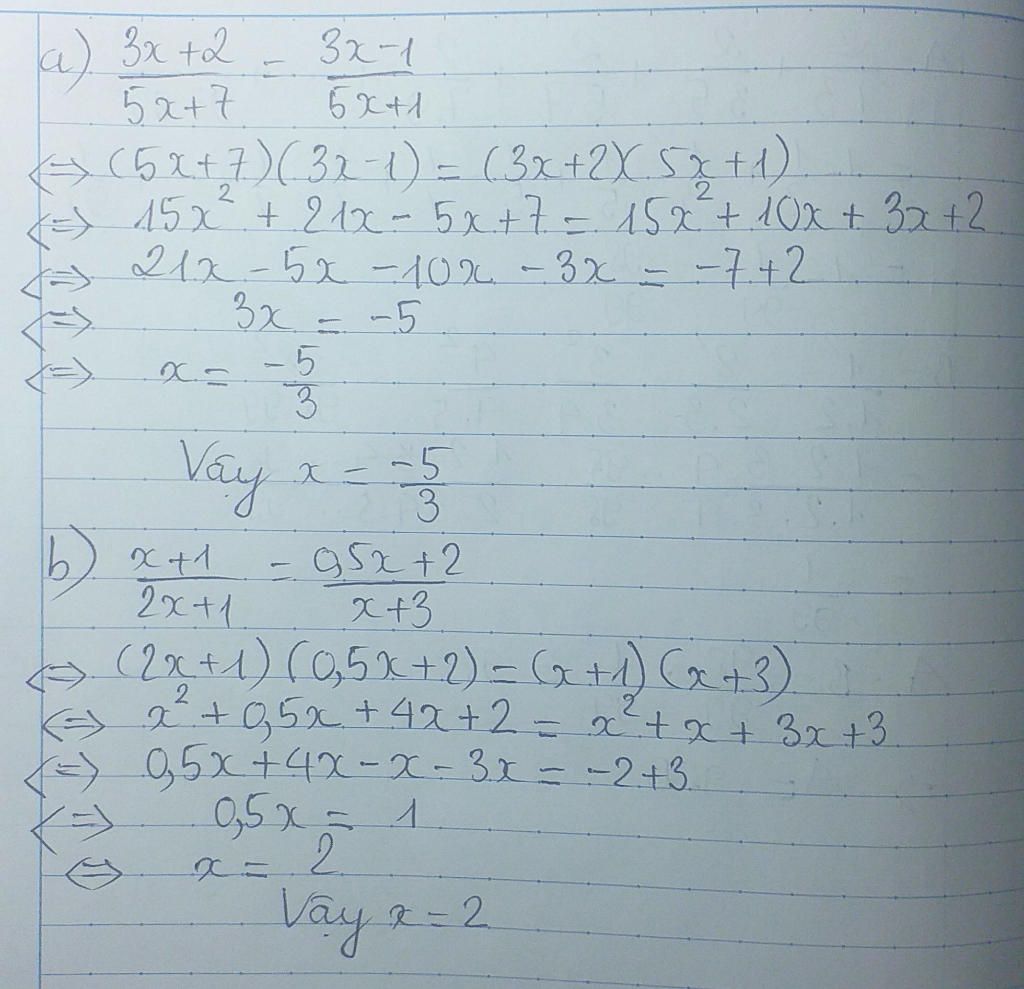 a) \frac{3x+2}{5x+7} = \frac{3x-1}{5x+1}
<=> (5x+7)(3x-1) = (3x+2)(5x+1)
<=> 15x² + 21x - 5x + 7 = 15x² + 10x + 3x + 2
<=> 21x - 5x - 10x - 3x = -7 + 2
<=> 3x = -5
<=> x = \frac{-5}{3}
Vậy x = \frac{-5}{3}
b) \frac{x+1}{2x+1} = \frac{0,5x+2}{x+3}
<=> (2x+1)(0,5x+2) = (x+1)(x+3)
<=> x² + 0,5x + 4x + 2 = x² + x + 3x + 3
<=> 0,5x + 4x - x - 3x = -2 + 3
<=> 0,5x = 1
<=> x = 2
Vậy x = 2